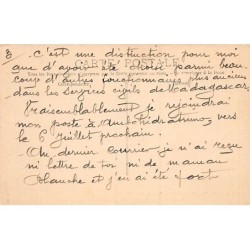 3 - C'est une distinction pour moi
que d'avoir été choisi parmi beau-
CARTE POSTALE
coup d'autres fonctionnaires plus anciens
dans les services civils de Madagascar,
Vraisemblablement je rejoindrai
mon poste à Ambohidratrimo, vers
le 6 Juillet prochain.
- Au dernier courrier je n'ai reçu
ni lettre de toi ni de maman
Blanche et j'en ai été fort